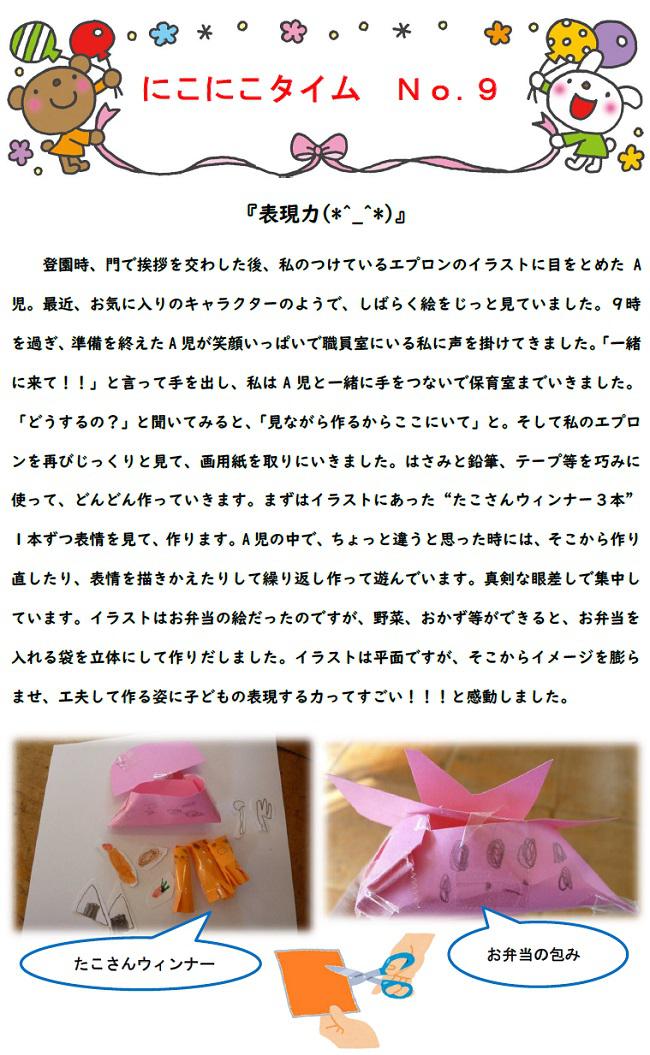 にこにこタイム　Ｎｏ.９
『表現力(*^_^*)』
登園時、門で挨拶を交わした後、私のつけているエプロンのイラストに目をとめた A
児。最近、お気に入りのキャラクターのようで、しばらく絵をじっと見ていました。９時
を過ぎ、準備を終えた A 児が笑顔いっぱいで職員室にいる私に声を掛けてきました。「一緒
に来て！！」と言って手を出し、私は A 児と一緒に手をつないで保育室までいきました。
「どうするの？」と聞いてみると、「見ながら作るからここにいて」と。そして私のエプロ
ンを再びじっくりと見て、画用紙を取りにいきました。はさみと鉛筆、テープ等を巧みに
使って、どんどん作っていきます。まずはイラストにあった“たこさんウィンナー３本”
１本ずつ表情を見て、作ります。A 児の中で、ちょっと違うと思った時には、そこから作り
直したり、表情を描きかえたりして繰り返し作って遊んでいます。真剣な眼差しで集中し
ています。イラストはお弁当の絵だったのですが、野菜、おかず等ができると、お弁当を
入れる袋を立体にして作りだしました。イラストは平面ですが、そこからイメージを膨ら
ませ、工夫して作る姿に子どもの表現する力ってすごい！！！と感動しました。
たこさんウィンナー
お弁当の包み